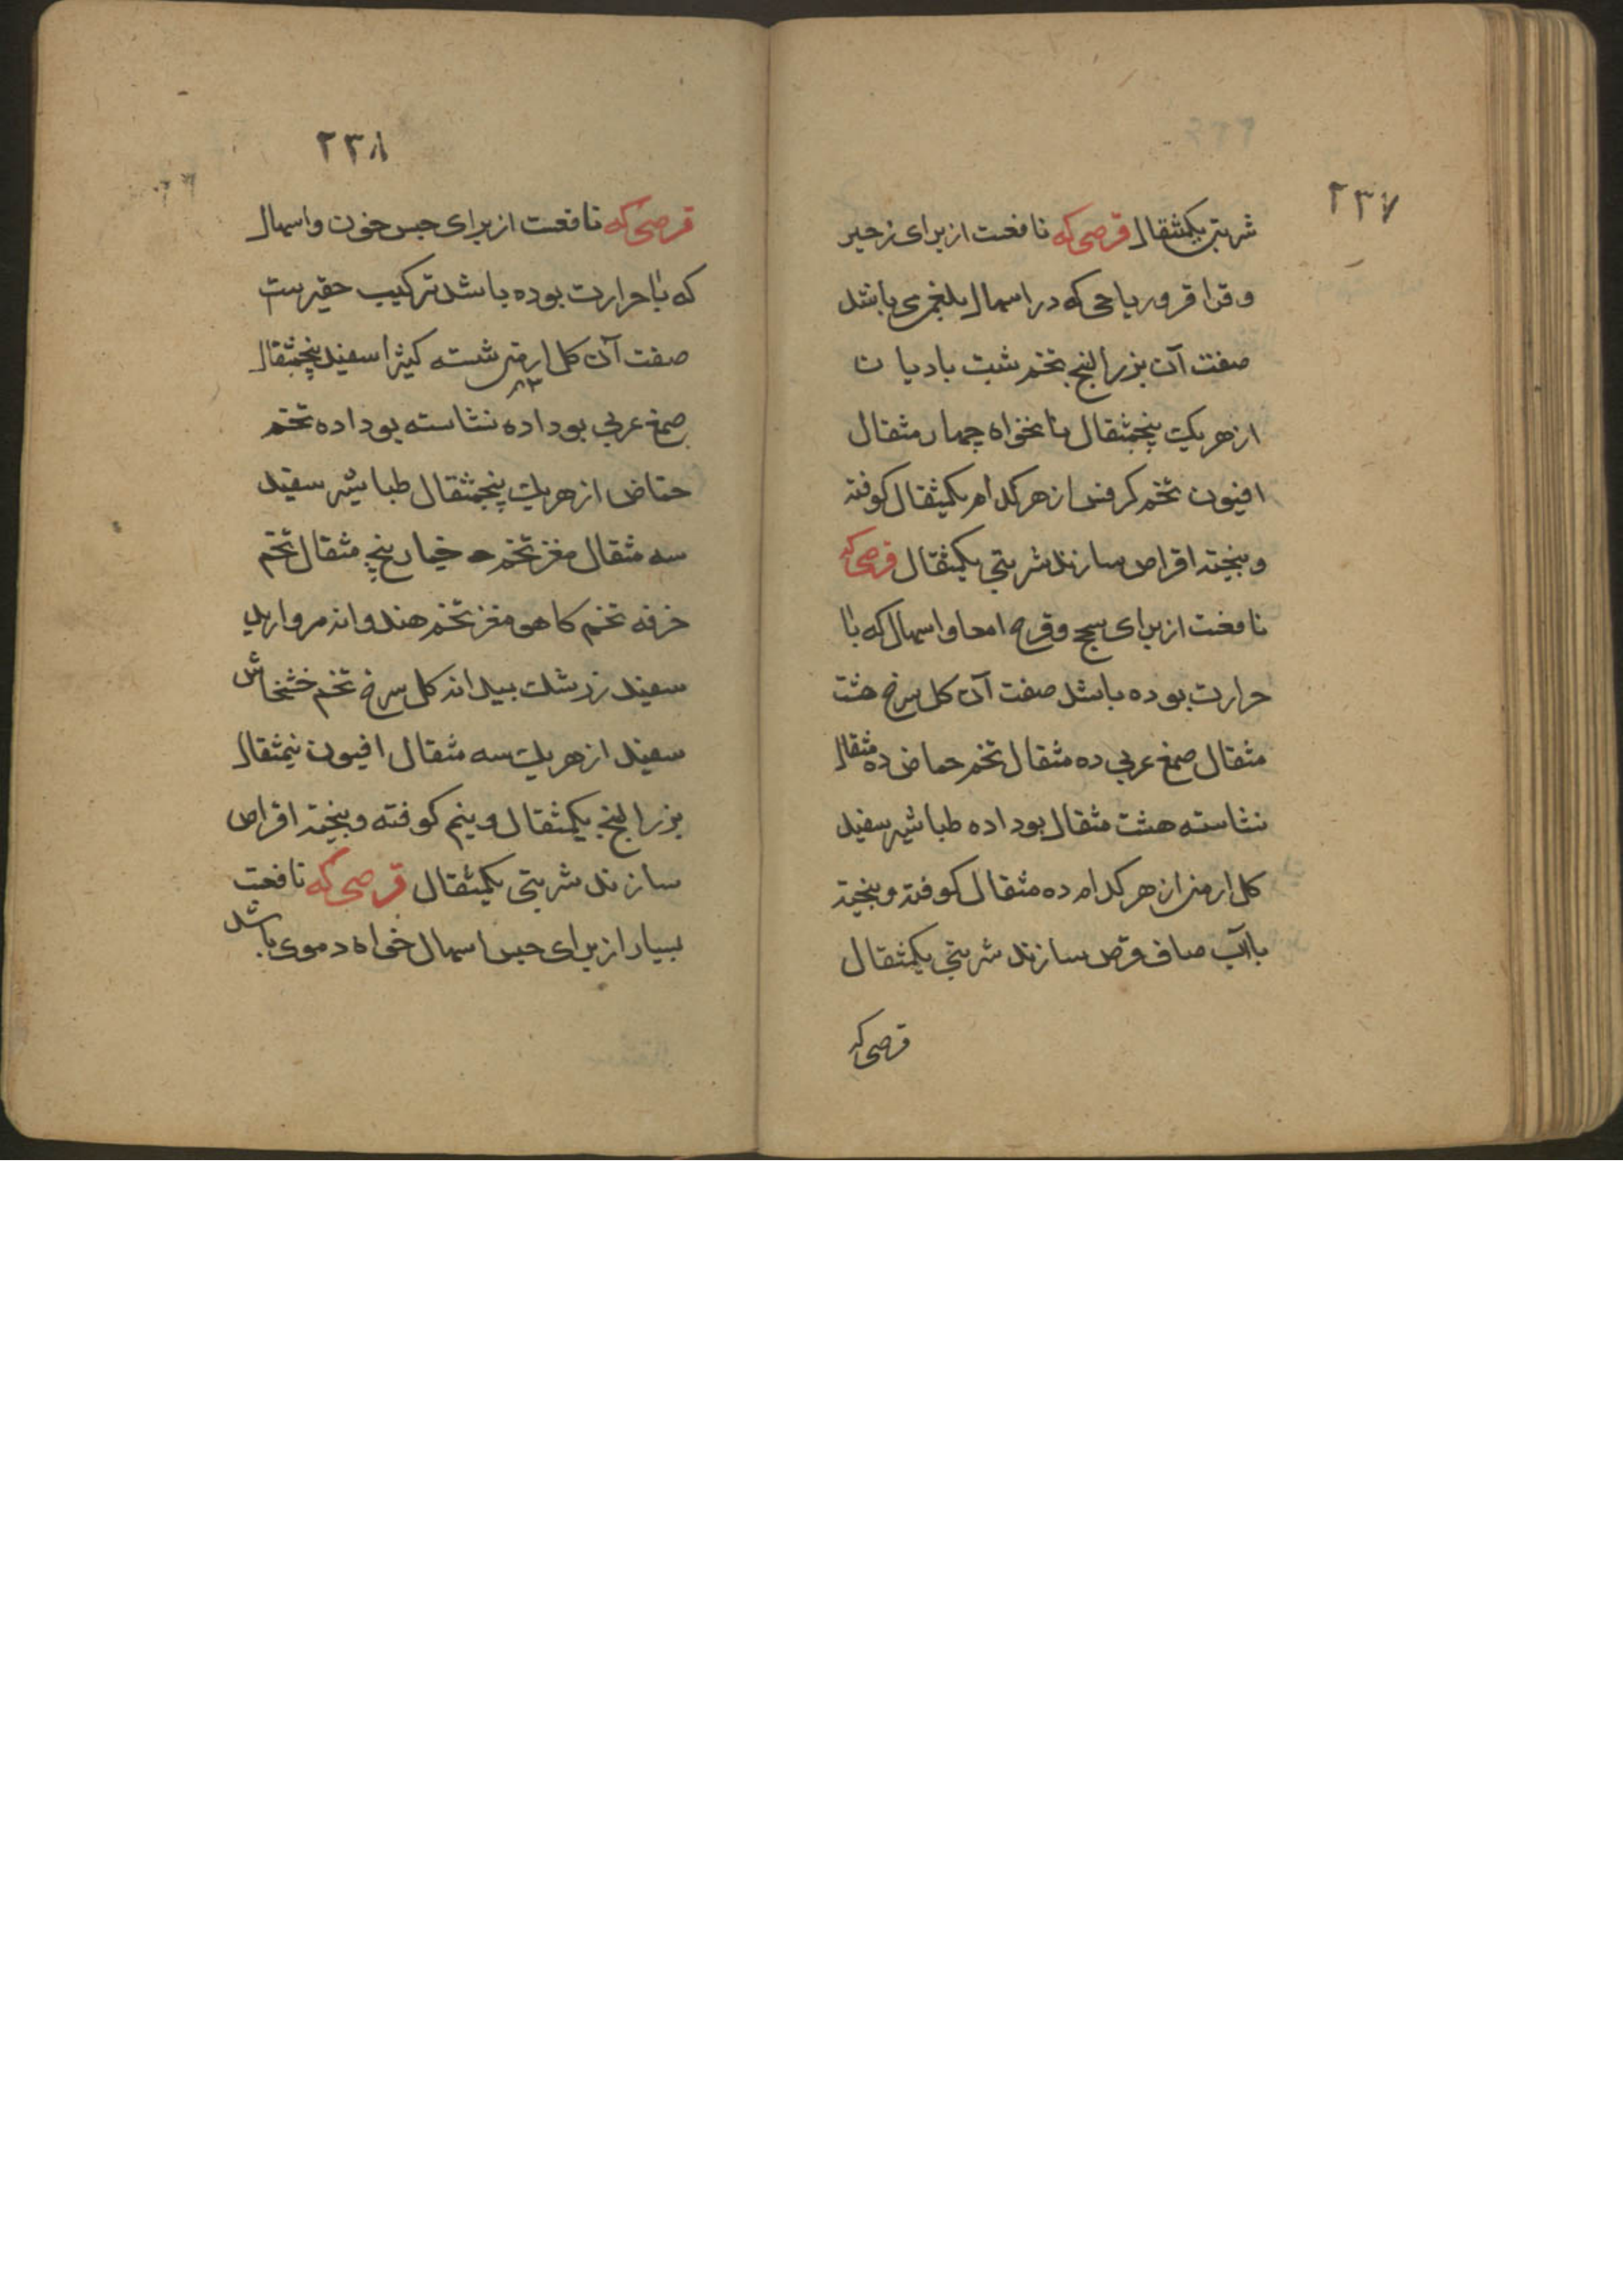 ۲۳۷
شربتی یکمثقال قرصی که نافعست از برای زحیر
و قراقر و ریاحی که در اسهال بلغمی باشد
صفت آن بزرالبنج تخم شبت بادیان
از هریک پنجمثقال نانخواه چهار مثقال
افیون تخم کرفس از هر کدام یکمثقال کوفته
و بیخته اقراص سازند شربتی یکمثقال قرصی که
نافعست از برای سحج و قرحه امعا و اسهال که با
حرارت بوده باشد صفت آن کل سرخ هشت
مثقال صمغ عربی ده مثقال تخم حماض ده مثقال
نشاسته هشت مثقال بوداده طباشیر سفید
کل ارمنی از هر کدام ده مثقال کوفته و بیخته
با آب صاف قرص سازند شربتی یکمثقال
قرصی که
۲۳۸
قرصی که نافعست از برای حبس خون و اسهال
که با حرارت بوده باشد ترکیب حقیرست
صفت آن کل ارمنی شسته کتیرا سفید پنجمثقال
صمغ عربی بوداده نشاسته بوداده تخم
حماض از هریک پنجمثقال طباشیر سفید
سه مثقال مغز تخم خیار پنج مثقال تخم
خرفه تخم کاهو مغز تخم هندوانه مروارید
سفید زرشک بیدانه کل سرخ تخم خشخاش
سفید از هریک سه مثقال افیون نیمثقال
بزرالبنج یکمثقال و نیم کوفته و بیخته اقراص
سازند شربتی یکمثقال قرصی که نافعست
بسیار از برای حبس اسهال خواه دموی باشد